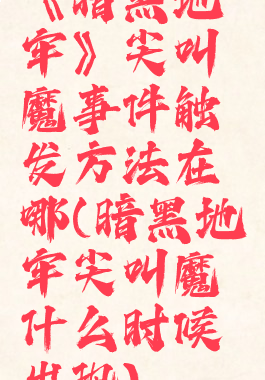 《暗黑地
牢》尖叫
魔事件触
发方法在
哪(暗黑地
牢尖叫魔
什么时候
出现)